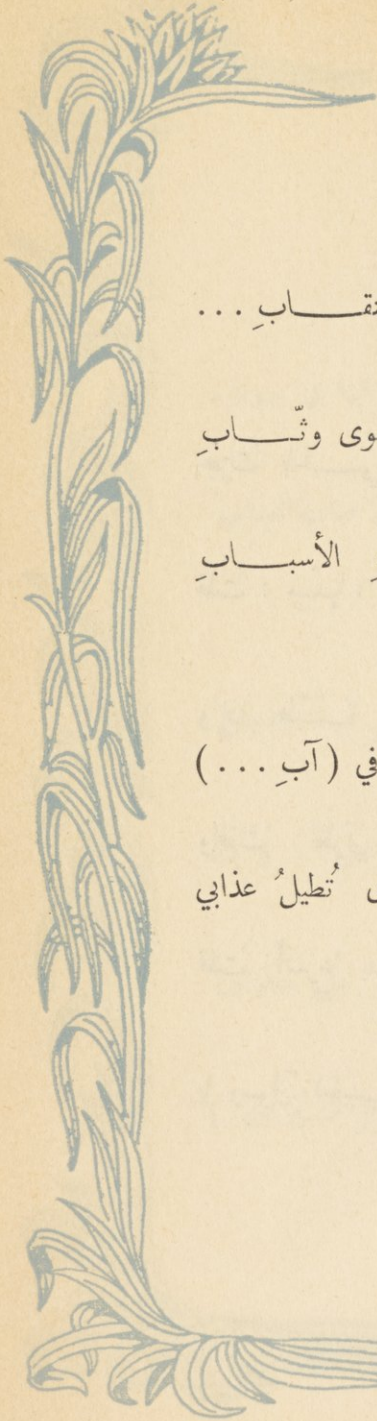 ـقـــابِ ...
ـوى وثّـــابِ
الأسبـــابِ
في (آبِ ...)
تُطيلُ عذابي